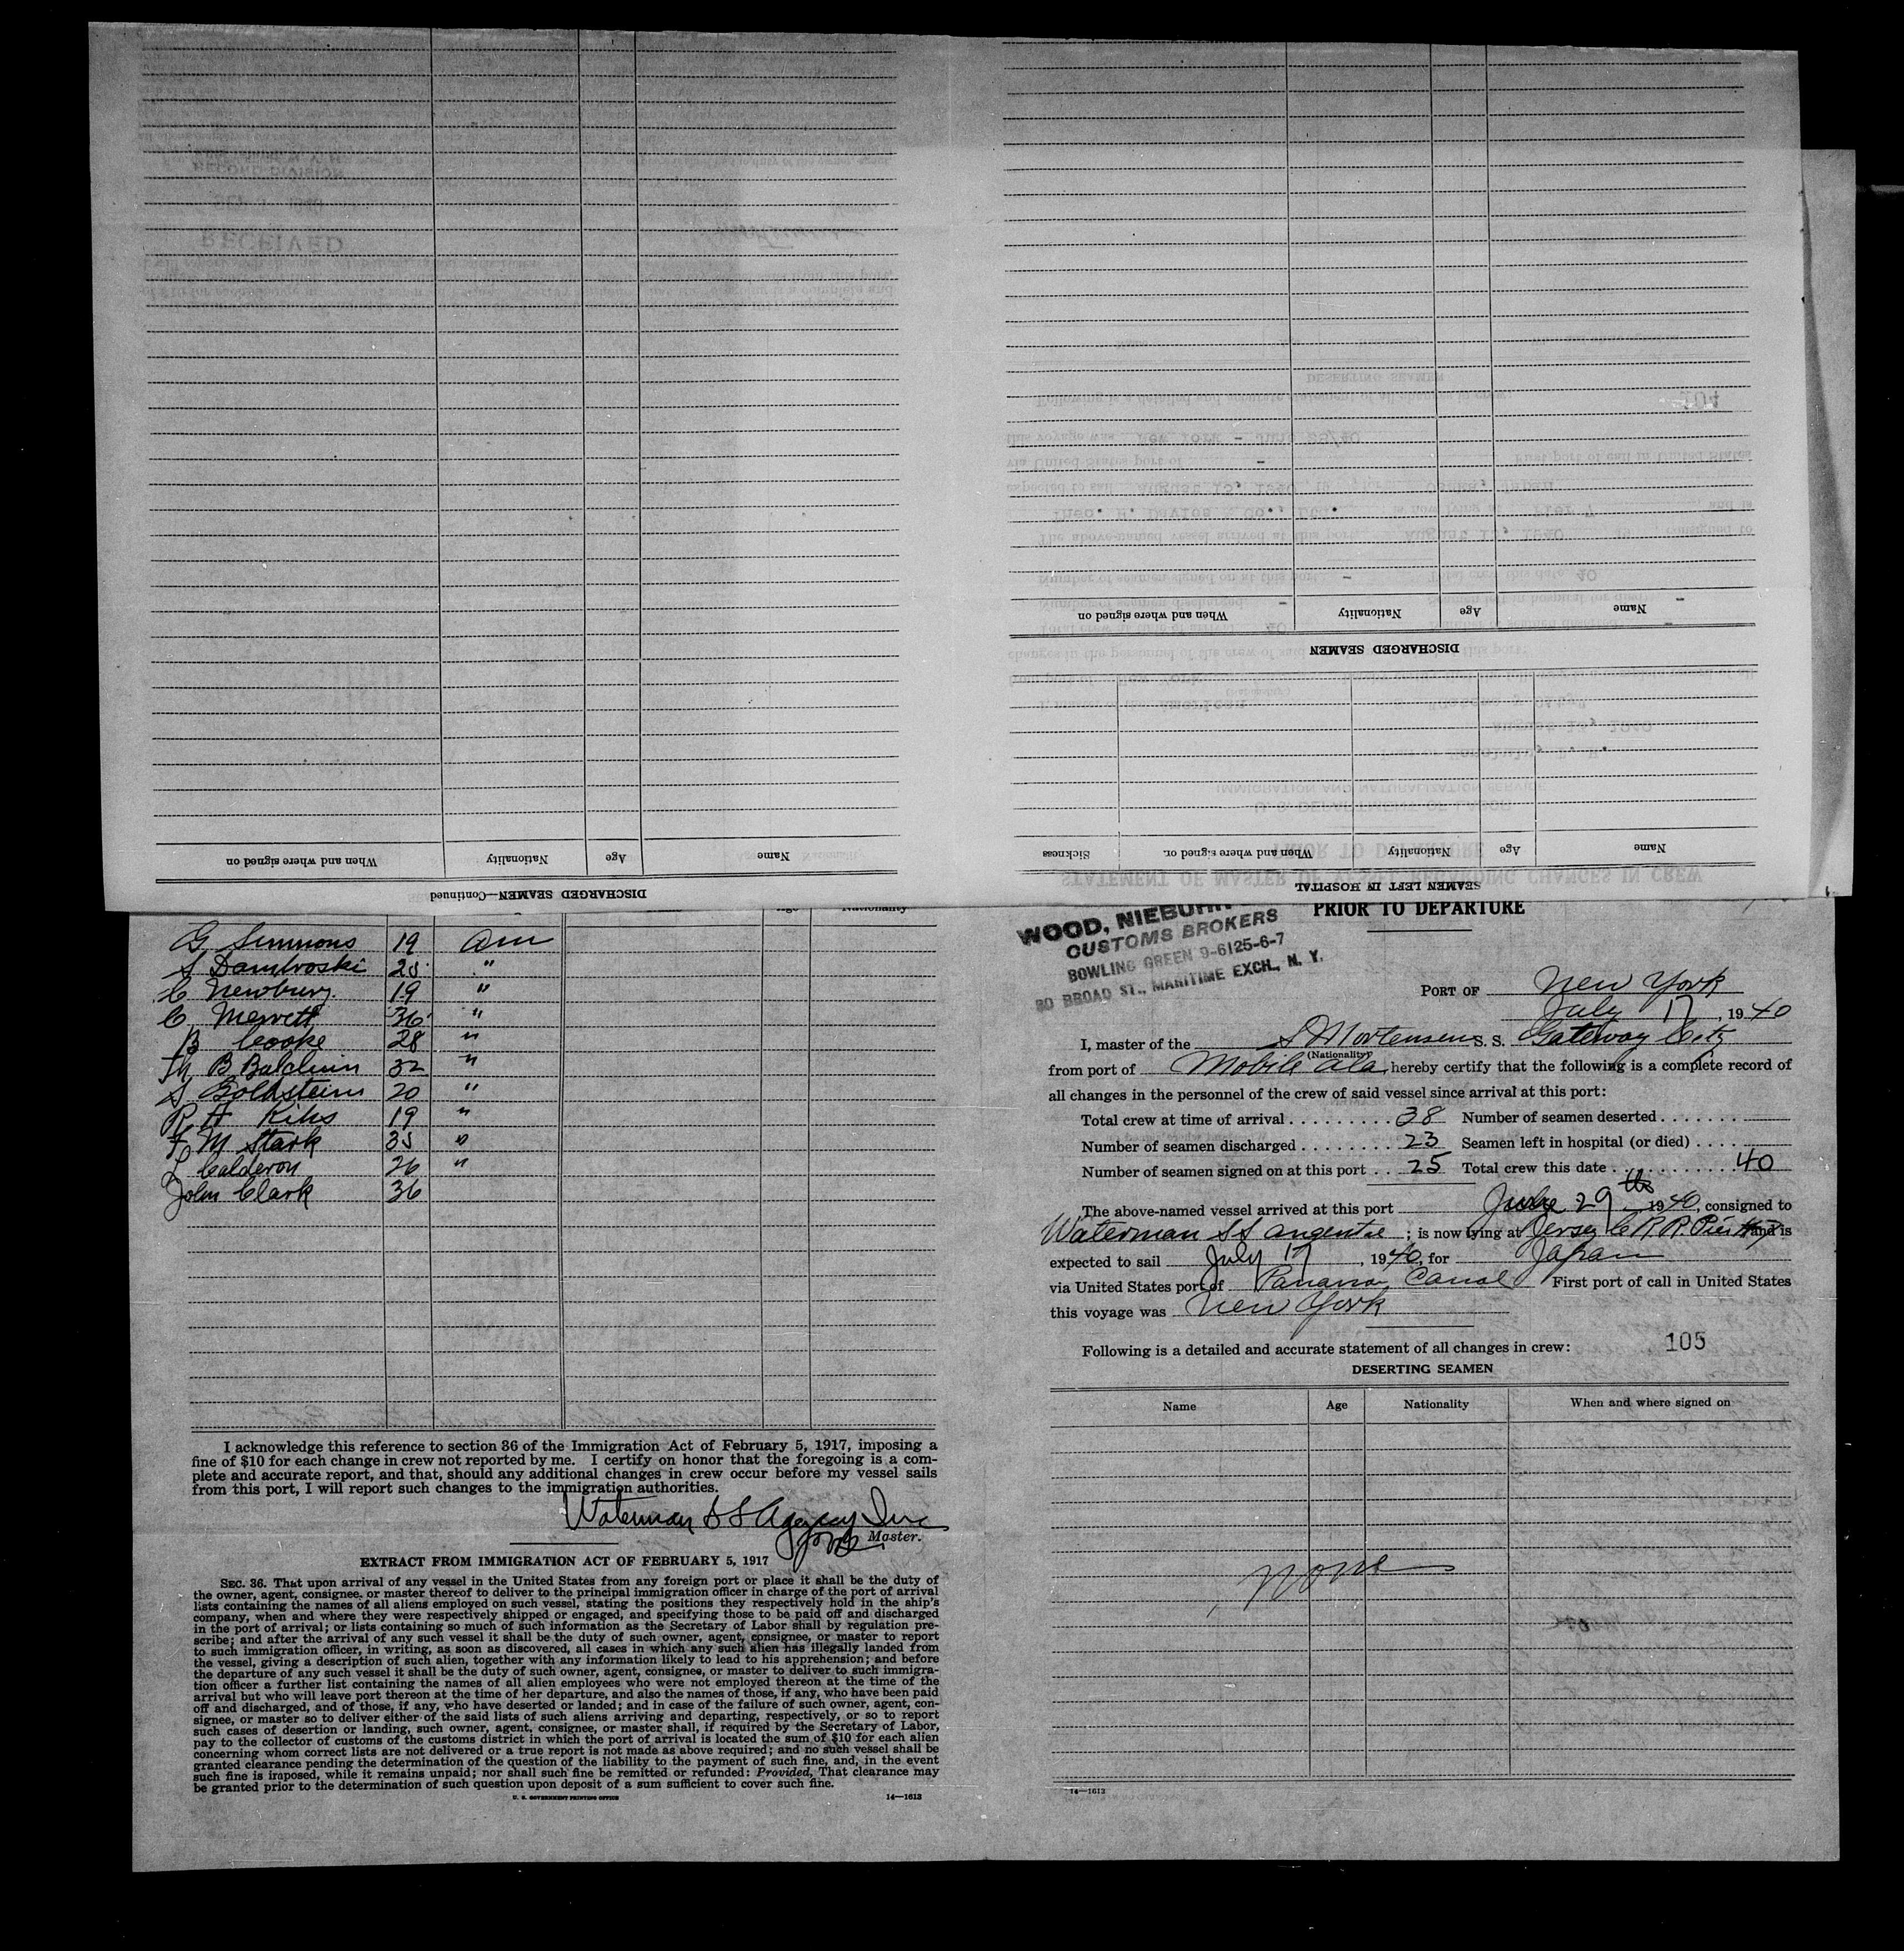 SEAMEN LEFT IN HOSPITAL
Name Age Nationality When and where signed on Sickness
DISCHARGED SEAMEN
Name Age Nationality When and where signed on
DISCHARGED SEAMEN—Continued
Name Age Nationality When and where signed on
G Simmons 19 Am
S Dambroski "
C Newbury 19 "
C 36 "
B Cooke 28 "
B Baldwin 32 "
S Goldstein 20 "
R H 19 "
F M Stark 35 "
L Calderon 26 "
John Clark 36
I acknowledge this reference to section 36 of the Immigration Act of February 5, 1917, imposing a
fine of $10 for each change in crew not reported by me. I certify on honor that the foregoing is a com-
plete and accurate report, and that, should any additional changes in crew occur before my vessel sails
from this port, I will report such changes to the immigration authorities.
Waterman S S Agency Inc
Master.
EXTRACT FROM IMMIGRATION ACT OF FEBRUARY 5, 1917
SEC. 36. That upon arrival of any vessel in the United States from any foreign port or place it shall be the duty of
the owner, agent, consignee, or master thereof to deliver to the principal immigration officer in charge of the port of arrival
lists containing the names of all aliens employed on such vessel, stating the positions they respectively hold in the ship's
company, when and where they were respectively shipped or engaged, and specifying those to be paid off and discharged
in the port of arrival; or lists containing so much of such information as the Secretary of Labor shall by regulation pre-
scribe; and after the arrival of any such vessel it shall be the duty of such owner, agent, consignee, or master to report
to such immigration officer, in writing, as soon as discovered, all cases in which any such alien has illegally landed from
the vessel, giving a description of such alien, together with any information likely to lead to his apprehension; and before
the departure of any such vessel it shall be the duty of such owner, agent, consignee, or master to deliver to such immigra-
tion officer a further list containing the names of all alien employees who were not employed thereon at the time of the
arrival but who will leave port thereon at the time of her departure, and also the names of those, if any, who have been paid
off and discharged, and of those, if any, who have deserted or landed; and in case of the failure of such owner, agent, con-
signee, or master so to deliver either of the said lists of such aliens arriving and departing, respectively, or so to report
such cases of desertion or landing, such owner, agent, consignee, or master shall, if required by the Secretary of Labor,
pay to the collector of customs of the customs district in which the port of arrival is located the sum of $10 for each alien
concerning whom correct lists are not delivered or a true report is not made as above required; and no such vessel shall be
granted clearance pending the determination of the question of the liability to the payment of such fine, and, in the event
such fine is imposed, while it remains unpaid; nor shall such fine be remitted or refunded: Provided, That clearance may
be granted prior to the determination of such question upon deposit of a sum sufficient to cover such fine.
U. S. GOVERNMENT PRINTING OFFICE 14—1613
PRIOR TO DEPARTURE
WOOD, NIEBUHR
CUSTOMS BROKERS
BOWLING GREEN 9-6125-6-7
80 BROAD ST., MARITIME EXCH., N. Y.
PORT OF New York
July 17, 1940
I, master of the S Mortensen S. S. Gateway City
(Nationality)
from port of Mobile Ala, hereby certify that the following is a complete record of
all changes in the personnel of the crew of said vessel since arrival at this port:
Total crew at time of arrival 38 Number of seamen deserted
Number of seamen discharged 23 Seamen left in hospital (or died)
Number of seamen signed on at this port 25 Total crew this date 40
The above-named vessel arrived at this port June 29th 1940, consigned to
Waterman SS ; is now lying at Jersey C R R. Pier and is
expected to sail July 17, 1940, for Japan
via United States port of Panama Canal First port of call in United States
this voyage was New York
Following is a detailed and accurate statement of all changes in crew: 105
DESERTING SEAMEN
Name Age Nationality When and where signed on
None
14—1613